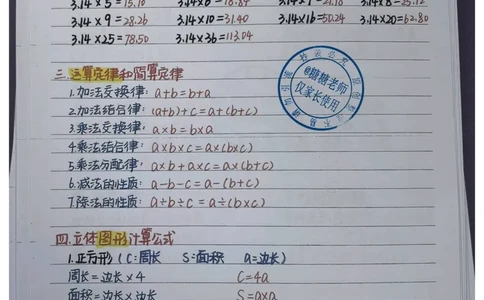 3.14×5=15.70 3.14×6=18.84 3.14×7=21.98 3.14×8=25.12
3.14×9=28.26 3.14×10=31.40 3.14×16=50.24 3.14×20=62.80
3.14×25=78.50 3.14×36=113.04
三.运算定律和简算定律
1.加法交换律: a+b=b+a
2.加法结合律: (a+b)+c=a+(b+c)
3.乘法交换律: a×b=b×a
4.乘法结合律: a×b×c=a×(b×c)
5.乘法分配律: a×b+a×c=a×(b+c)
6.减法的性质: a-b-c=a-(b+c)
7.除法的性质: a÷b÷c=a÷(b×c)
@糖糖老师
仅家长使用
四.立体图形计算公式
1.正方形(C:周长 S:面积 a:边长)
周长=边长×4 C=4a
面积=边长×边长 S=a×a